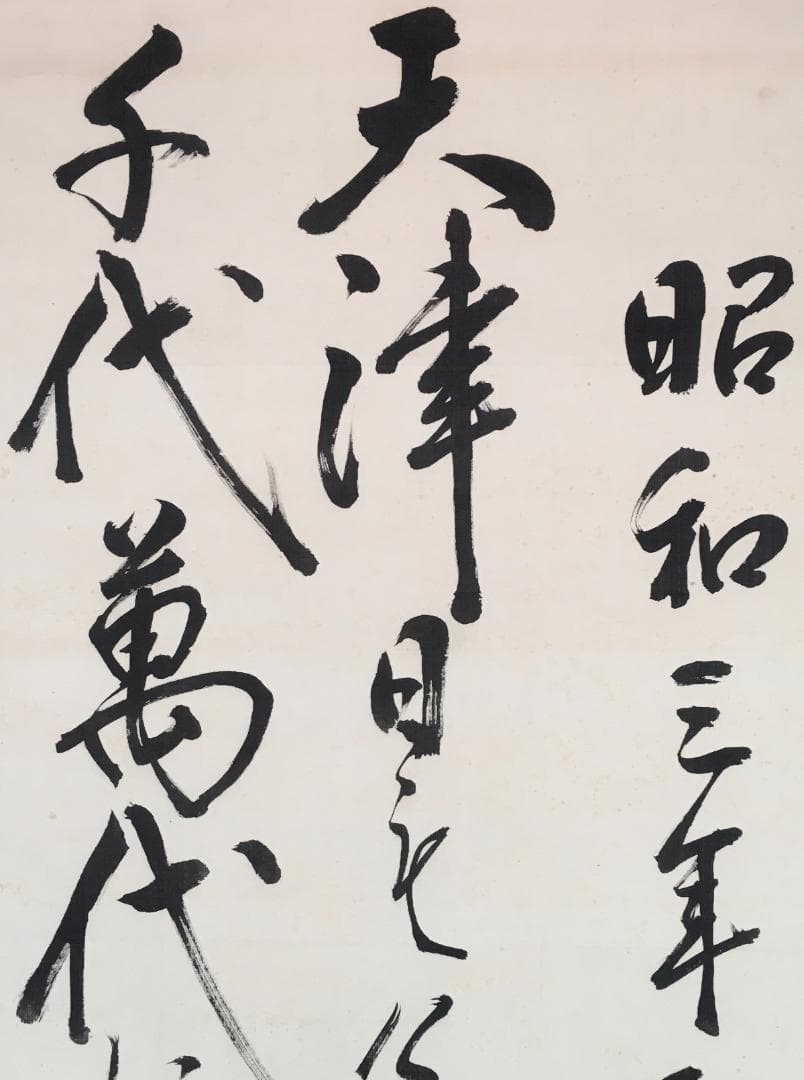 昭和三年
天津日
千代萬代